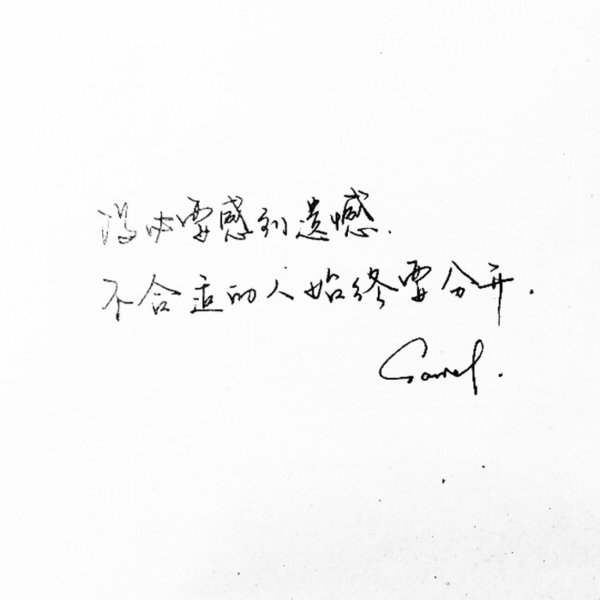 没必要感到遗憾.
不合适的人始终要分开.